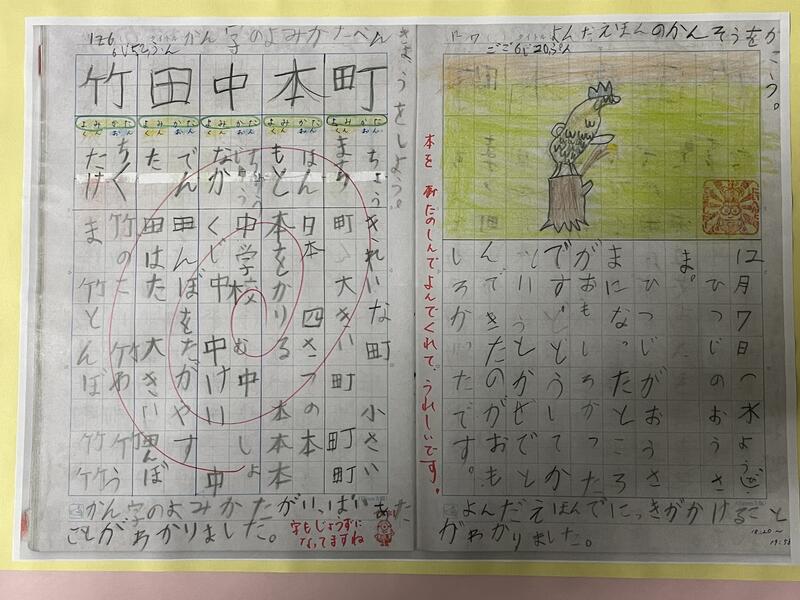 12 7
よんだえほんのかんそうをかこう。
ごご6じ20ぷん
12月7日(水よう日)
ひつじのおうさ
ま。
ひつじがおうさ
まになったところ
がおもしろかった
です。どうしてか
しいうと
んできたのがおも
しろかったです。
よんだえほんでにっきがかけること
がわかりました。
18:20~
本を
たのしんでよんでくれて、うれしいです。
12/6
かん字のよみかたべん
きょうをしよう。
町 本 中 田 竹
よみかた よみかた よみかた よみかた よみかた
くん おん くん おん くん おん くん おん くん おん
ちょう きれいな町 小さい
まち 町 大きい町 町町
ほん 日本 四さつの本
もと 本をかりる 本本本
ちゅう 中学校 む中 しょ
なか くじ中 中けい 中
でん 田んぼをたがやす
た 田はた 大きい田んぼ
ちく 竹のた 竹わ 竹竹う
たけ ま 竹とんぼ 竹竹
かん字のよみかたがいっぱいあった
ことがわかりました。
字もじょうずに
なってますね